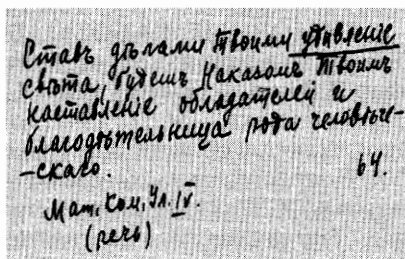 Ставъ дѣлами твоими удивленіе
свѣта, будешь Наказомъ Твоимъ
наставленіе обладателей и
благодѣтельница рода человѣче-
-скаго.
64.
Мат. Ком. Ул. IV.
(речь)